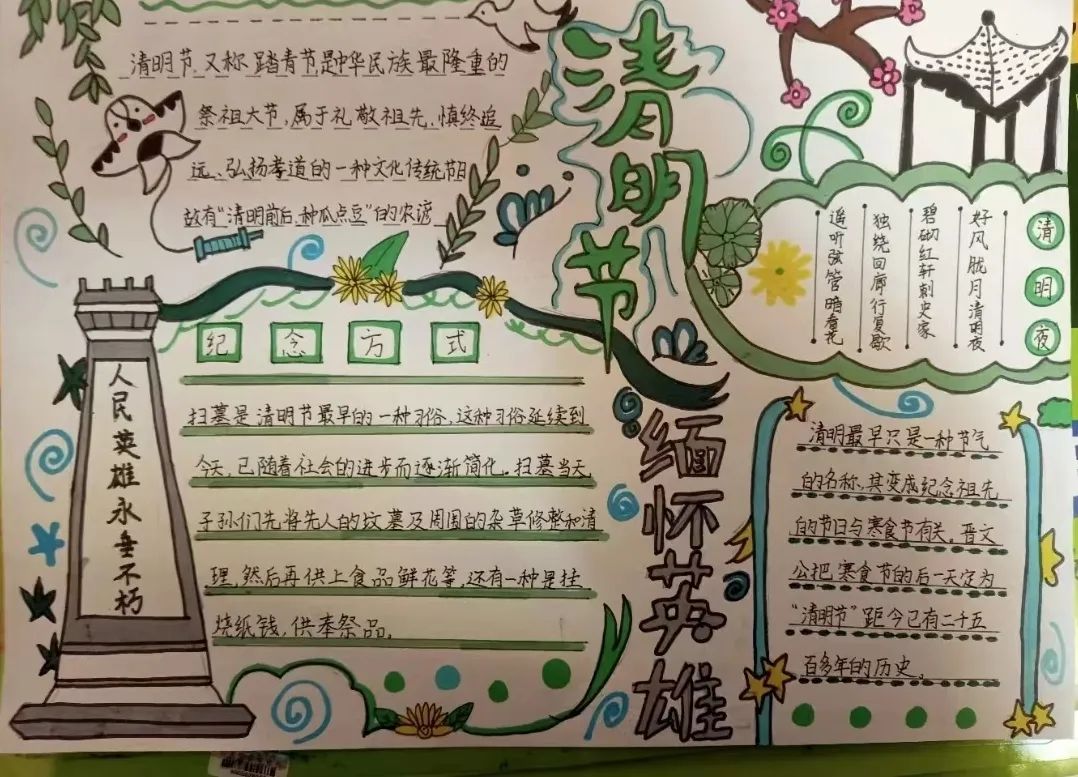 清明节,又称踏青节,是中华民族最隆重的
祭祖大节,属于礼敬祖先、慎终追
远、弘扬孝道的一种文化传统节日
故有“清明前后,种瓜点豆”的农谚
清明节
缅怀英雄
清明夜
好风胧月清明夜
碧砌红轩刺史家
独绕回廊行复歇
遥听弦管暗看花
纪念方式
扫墓是清明节最早的一种习俗,这种习俗延续到
今天,已随着社会的进步而逐渐简化。扫墓当天
子孙们先将先人的坟墓及周围的杂草修整和清
理,然后再供上食品鲜花等,还有一种是挂
烧纸钱,供奉祭品。
人民英雄永垂不朽
清明最早只是一种节气
的名称,其变成纪念祖先
的节日与寒食节有关。晋文
公把寒食节的后一天定为
“清明节”距今已有二千五
百多年的历史。